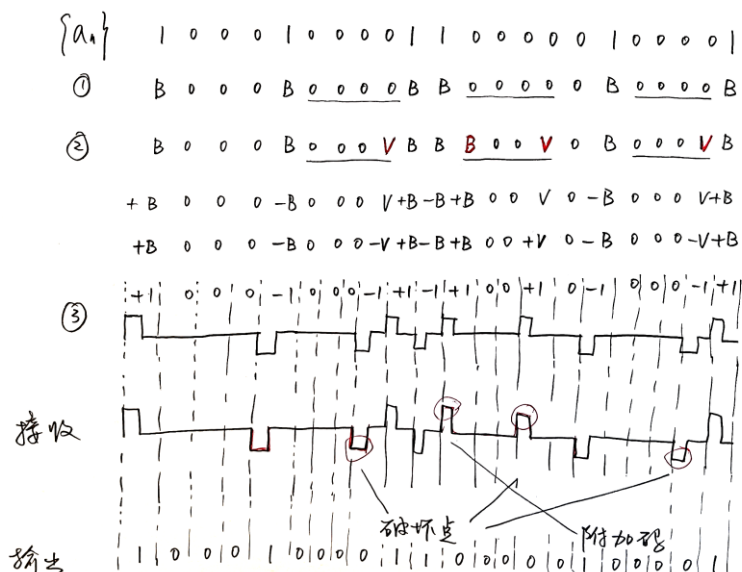 {aₙ} 1 0 0 0 1 0 0 0 0 1 1 0 0 0 0 0 1 0 0 0 0 1
① B 0 0 0 B 0 0 0 0 B B 0 0 0 0 0 B 0 0 0 0 B
② B 0 0 0 B 0 0 0 V B B B 0 0 V 0 B 0 0 0 V B
+B 0 0 0 -B 0 0 0 V +B -B +B 0 0 V 0 -B 0 0 0 V +B
+B 0 0 0 -B 0 0 0 -V +B -B +B 0 0 +V 0 -B 0 0 0 -V +B
+1 0 0 0 -1 0 0 0 -1 +1 -1 +1 0 0 +1 0 -1 0 0 0 -1 +1
③
接收
破坏点 附加码
输出 1 0 0 0 1 0 0 0 0 1 1 0 0 0 0 0 1 0 0 0 0 1